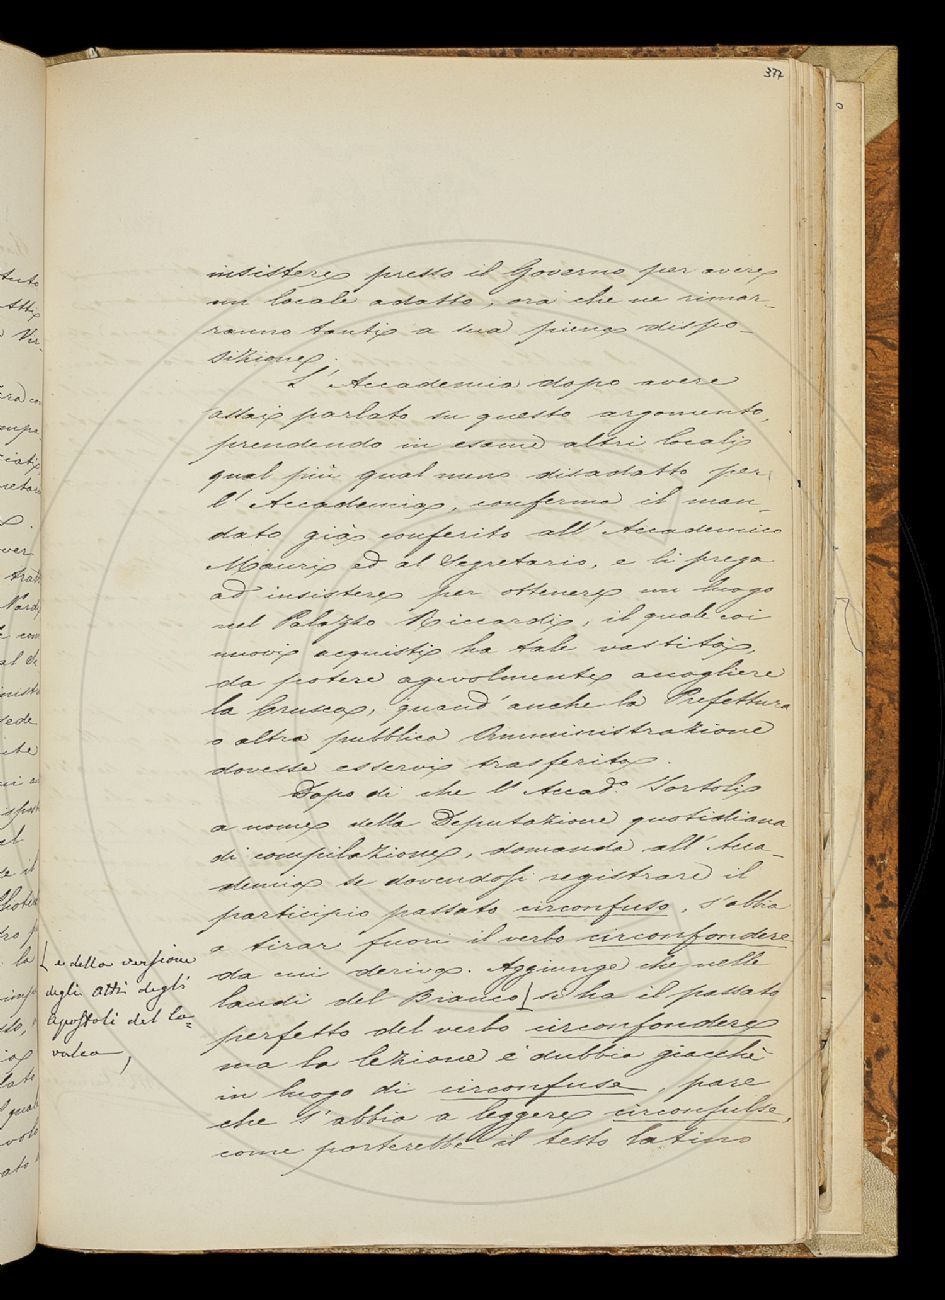 377
insistere presso il Governo per avere
un locale adatto, ora che ne rimar-
ranno tanti a sua piena dispo-
sizione.
L'Accademia dopo avere
assai parlato su questo argomento,
prendendo in esame altri locali
qual più qual meno disadatto per
l'Accademia, conferma il man-
dato già conferito all'Accademico
Mauri ed al Segretario, e li prega
ad insistere per ottenere un luogo
nel Palazzo Riccardi, il quale coi
nuovi acquisti ha tale vastità,
da potere agevolmente accogliere
la Crusca, quand'anche la Prefettura
o altra pubblica Amministrazione
dovesse esservi trasferita.
Dopo di che l'Accad.º Tortoli
a nome della Deputazione quotidiana
di compilazione, domanda all'Acca-
demia se dovendosi registrare il
participio passato circonfuso, s'abbia
a tirar fuori il verbo circonfondere
da cui deriva. Aggiunge che nelle
laudi del Bianco si ha il passato
perfetto del verbo circonfondere
ma la lezione è dubbia giacchè
in luogo di circonfuse, pare
che s'abbia a leggere circonfulse,
come porterebbe il testo latino
e della versione
degli atti degli
Apostoli del Ca-
valca,